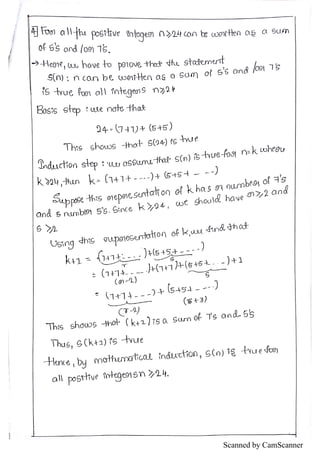 4) For all the positive integers n≥24 can be written as a sum
of 5's and /or 7's.
→ Here, we have to prove that the statement
S(n): n can be written as a sum of 5's and /or 7's
is true for all integers n≥24
Basis step : we note that
24 = (7+7) + (5+5)
This shows that S(24) is true
Induction step : we assume that S(n) is true for n=k where
k≥24, then k = (7+7+ - - - -) + (5+5+ - - -)
Suppose this representation of k has r number of 7's
and s number 5's. Since k≥24, we should have r≥2 and
s≥2
Using this representation of k, we find that
k+1 = (7+7+ - - - -) + (5+5+ - - - -) + 1
r s
= (7+7+ - - - -) + (7+7) + (5+5+ - - - -) + 1
(r-2) s
= (7+7+ - - - -) + (5+5+ - - - -)
(r-2) (s+3)
This shows that (k+1) is a sum of 7s and 5's
Thus, S(k+1) is true
Hence, by mathematical induction, S(n) is true for
all positive integers n≥24.
Scanned by CamScanner